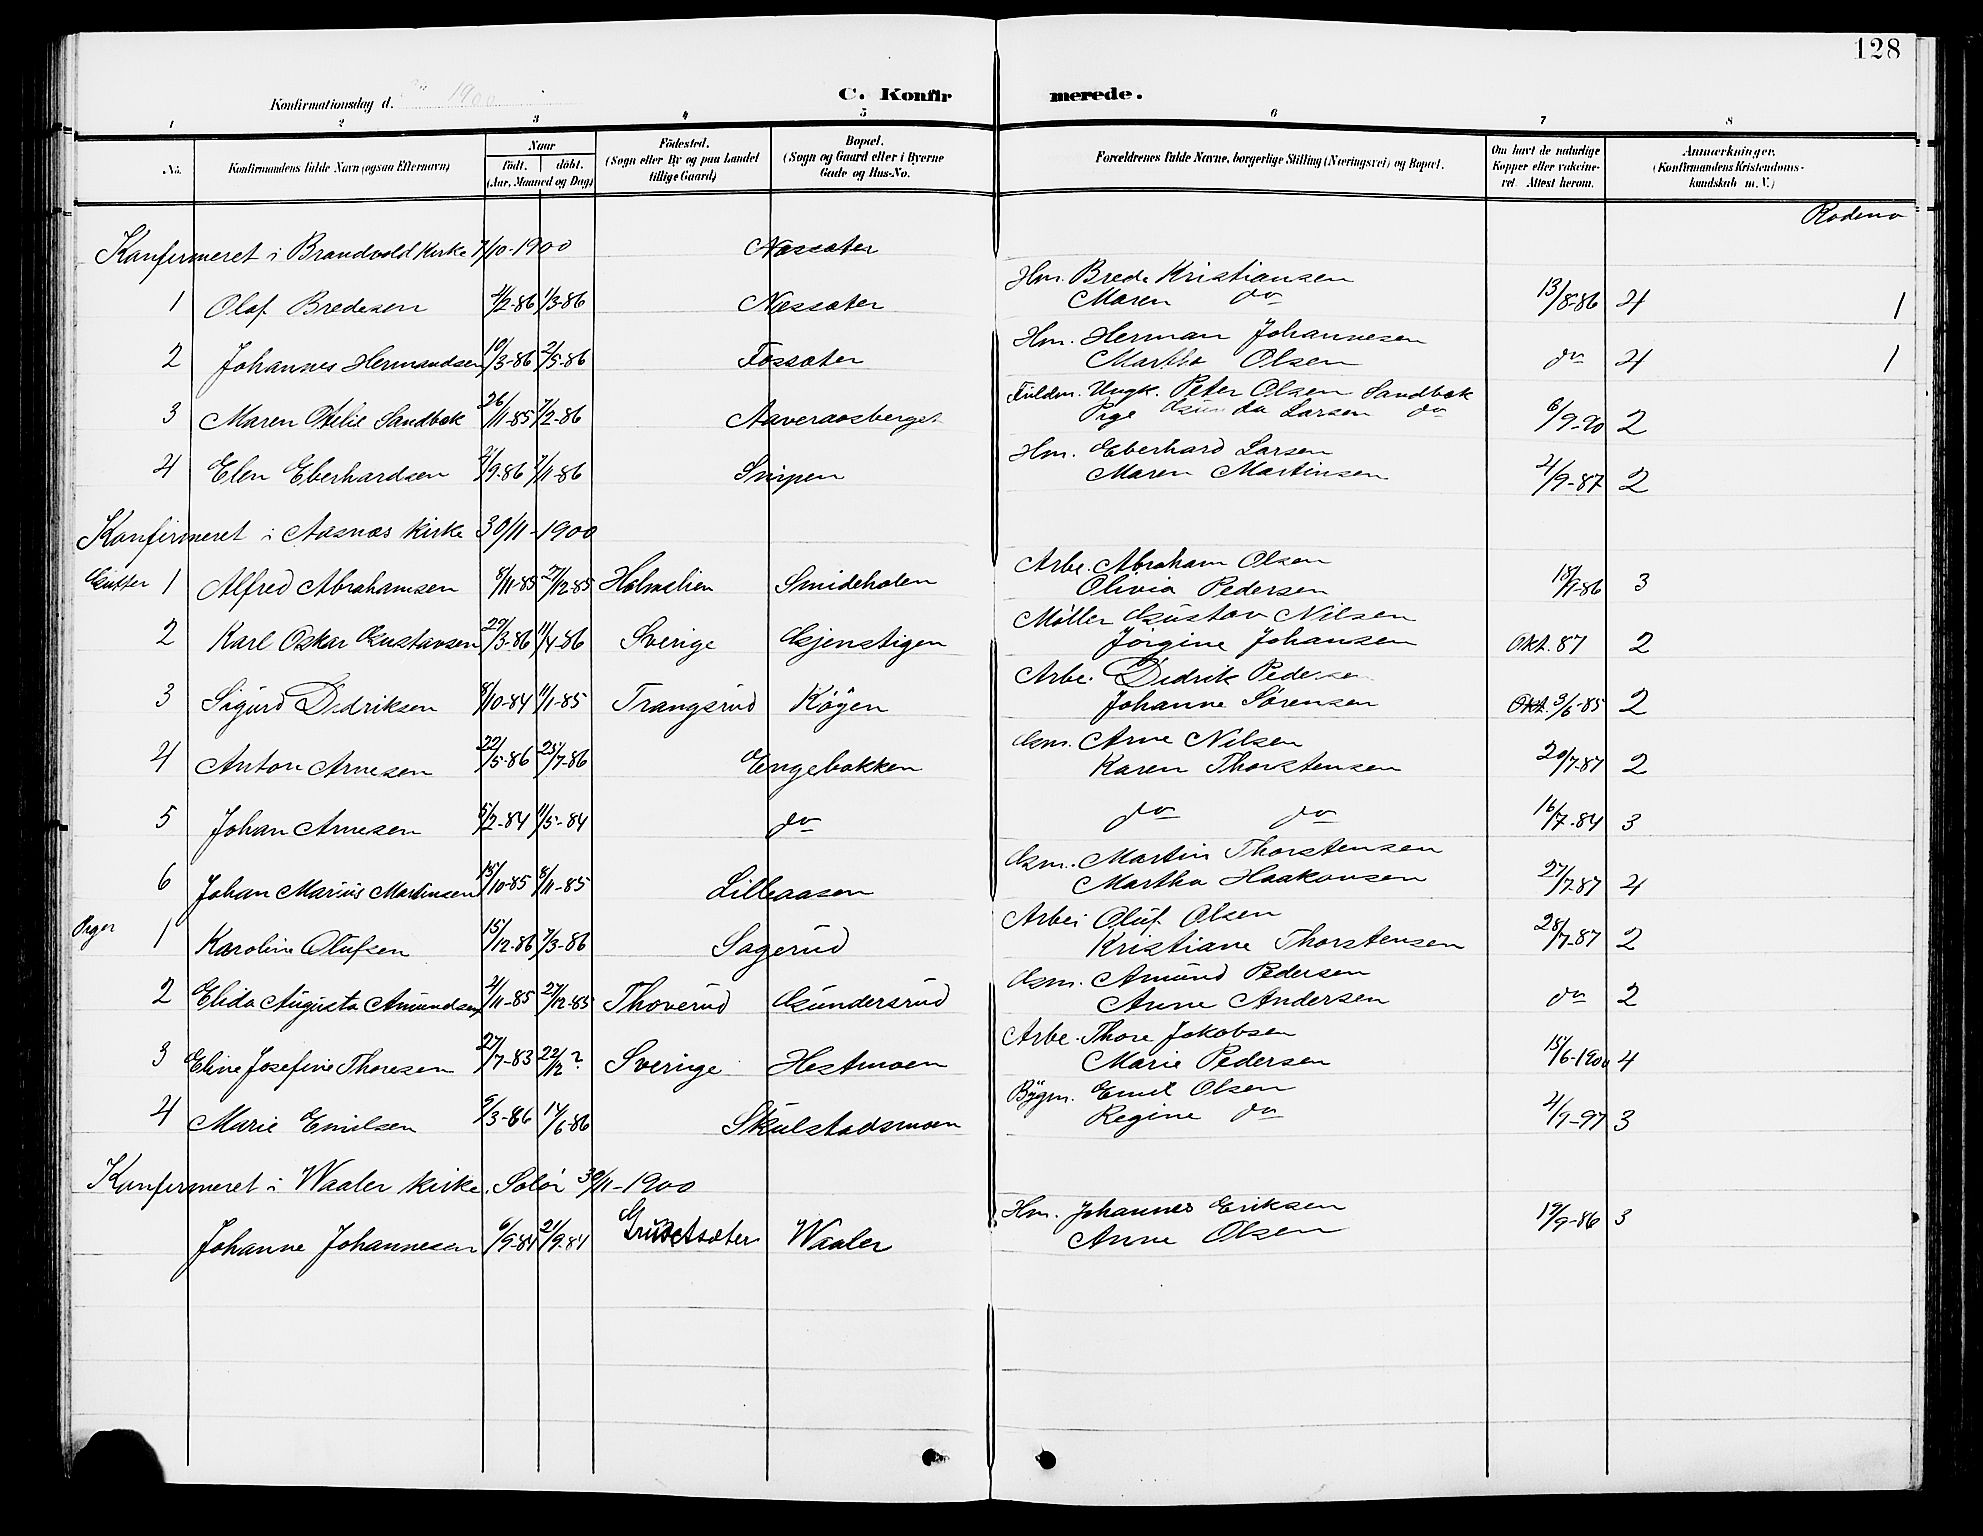 128
Konfirmationsdag d. 1900
C. Konfirmerede.
1 2 3 4 5 6 7 8
No. Konfirmandens fulde Navn (ogsaa Efternavn) Naar født. døbt. (Aar, Maaned og Dag) Födested. (Sogn eller By og paa Landet tillige Gaard) Bopæl. (Sogn og Gaard eller i Byerne Gade og Hus-No. Forældrenes fulde Navne, borgerlige Stilling (Næringsvei) og Bopæl. Om havt de naturlige Kopper eller vakcineret. Attest herom. Anmærkninger. (Konfirmandens Kristendomskundskab m. V.)
Konfirmeret i Brandvold Kirke 7/10-1900 Næssæter
Hm. Brede Kristiansen
1 Olaf Bredesen /2-86 1/3-86 Næssæter Maren do 13/8-86 4 1
Hm. Herman Johannesen
2 Johannes Hermandsen 19/3-86 2/5-86 Fossæter Martha Olsen do 4 1
Ungk. Peter Olsen Sandbæk
3 Maren Otelie Sandbæk 26/11-85 7/2-86 Aaveraasberget Pige Gunda Larsen do 6/9-90 2
Hm. Eberhard Larsen
4 Elen Eberhardsen 2/9-86 7/11-86 Snipen Maren Martinsen 4/9-87 2
Konfirmeret i Aasnæs Kirke 30/11-1900
Arbe. Abraham Olsen
Gutter 1 Alfred Abrahamsen 8/11-85 27/12-85 Holmelien Smideholen Olivia Pedersen 15/9-86 3
Møller Gustav Nilsen
2 Karl Oskar Gustavsen 22/3-86 11/4-86 Sverige Gjenstigen Jørgine Johansen Okt. 87 2
Arbe. Didrik Pedersen
3 Sigurd Didriksen 8/10-84 11/1-85 Trangsrud Køyen Johanne Sørensen Okt. 3/6-85 2
Gsm. Arne Nilsen
4 Anton Arnesen 22/5-86 25/7-86 Engebakken Karen Thorstensen 20/7-87 2
5 Johan Arnesen 5/2-84 11/5-84 do do do 16/7-84 3
Gsm. Martin Thorstensen
6 Johan Marius Martinsen 15/10-85 8/11-85 Lilleaasen Martha Haakonsen 27/7-87 4
Arbei Oluf Olsen
Piger 1 Karoline Olufsen 15/12-86 7/3-86 Sagerud Kristiane Thorstensen 28/7-87 2
Gsm. Amund Pedersen
2 Elida Augusta Amundsen 2/11-85 27/12-85 Thoverud Gundersrud Anne Andersen do 2
Arbe. Thore Jakobsen
3 Eline Josefine Thoresen 27/7-83 22/12 ? Sverige Hestmoen Marie Pedersen 15/6-1900 4
Bygm. Emil Olsen
4 Marie Emilsen 9/3-86 14/6-86 Skulstadsmoen Regine do 2/9-97 3
Konfirmeret i Waaler Kirke, Solør 30/11-1900
Hm. Johannes Eriksen
Johanne Johannesen 6/9-84 21/9-84 Waaler Anne Olsen 19/9-86 3